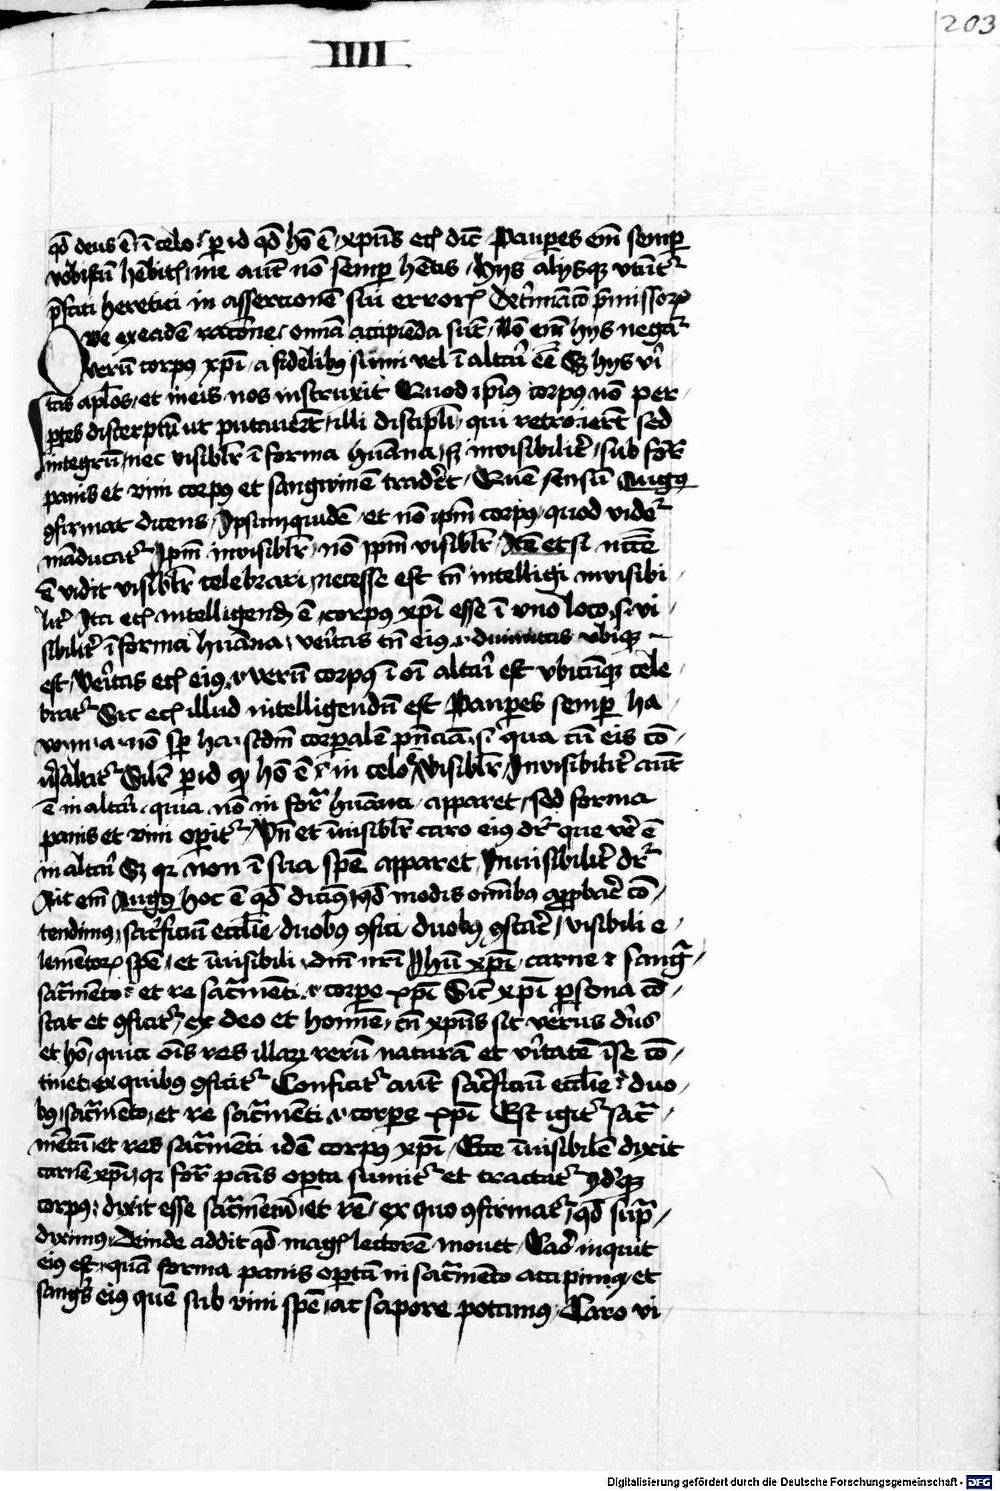 203
IIII
qd deus ē ī celo / p id qd hō ē / xpūs etc dic̄ Paupes em̄ semp
vobiscū hēbitis me aut̄ nō semp hētis / Hijs alijsq; vtūt᷑
p̄fati heretici in assertionē sui erroris Det̄mīatō p̄missor
Que ex eadē ratōne / omīa accipiēda sūt / Nō em̄ hijs negat᷑
verū corpus xp̄i / a fidelibus sūmi vel ī altari eē Sz hijs v̄i
tas aplōs / et in eis nos instruxit Quod ip̄ius corpus nō per
ptes discerptū ut putauer̄t / illi discipli / qui retroierūt sed
integrū / nec visiblr̄ ī forma hūana / sz inuisibilit̄ / sub for̄
panis et vini corpus et sanguinē traderet / Quē sensū Augus
9firmat dicens / Ipsum quidē / et nō ipm̄ corpus / quod videt᷑
māducat᷑ Ipm̄ inuisiblr̄ / nō ipm̄ visiblr̄ / Itē et si necēe
ē vidit visiblr̄ celebrari / necesse est tn̄ intelligi inuisibi
lit̄ Ita etc intelligend ē / corpus xp̄i esse ī vno loco s. vi
sibilit̄ ī forma hūana / veritas tn̄ eius .i. diuinitas vbiq;
est / Veritas etc eius .i. verū corpus ī oī altari est vbicūq; cele
brat᷑ Sic etc illud intelligendū est Paupes semp ha
nō sp ha. scdm̄ corpalē pn̄ciā / qua cū eis cō
ūsabat᷑ Silr̄ p id q hō ē / in celo ē visiblr̄ / Inuisibilit̄ aut̄
ē in altari / quia nō in for̄ hūana apparet / sed forma
panis et vini operit᷑ / Vn̄ et inuisiblr̄ caro eius dr̄ que vē ē
in altari Sz qr non ī sua spē apparet / Inuisibilit̄ dr̄
Ait em̄ Augus hoc ē qd dicimus / qd modis omībus approbare cō
tendimus / sacrificiū ecclīe / duobus 9fici / duobus 9stare / visibili e
lemētor spē / et īuisibili dn̄i nr̄i Ihū xp̄i / carne et sang᷑
sacr̄mēto / et re sacr̄mēti .i. corpe xp̄i Sic xp̄i psona cō
stat et 9ficit᷑ / ex deo et homīe / cū xpūs sit verus dūs
et hō / quia oīs res illar rerū naturā et v̄itatē ī se cō
tinet ex quibus 9ficit᷑ Conficit᷑ aut̄ sacrificiū ecclīe duo
bus / sacr̄mēto / et re sacr̄mēti .i. corpe xp̄i Est igit᷑ sacr̄
mētū et res sacr̄mēti idē corpus xp̄i / Ecce īuisibilē dixit
carnē xp̄i / qr for̄ panis opta sumit᷑ et tractat᷑
corpus / dixit esse sacr̄mētū / et rē / ex quo 9firmat᷑ / qd sup̄
diximus / Deinde addit qd mag lectorē mouet / Caro inquit
eius est / quā forma panis optū in sacr̄mēto accipimus / et
sangs eius quē sub vini spē / ac sapore potamus / Caro vi
Digitalisierung gefördert durch die Deutsche Forschungsgemeinschaft - DFG